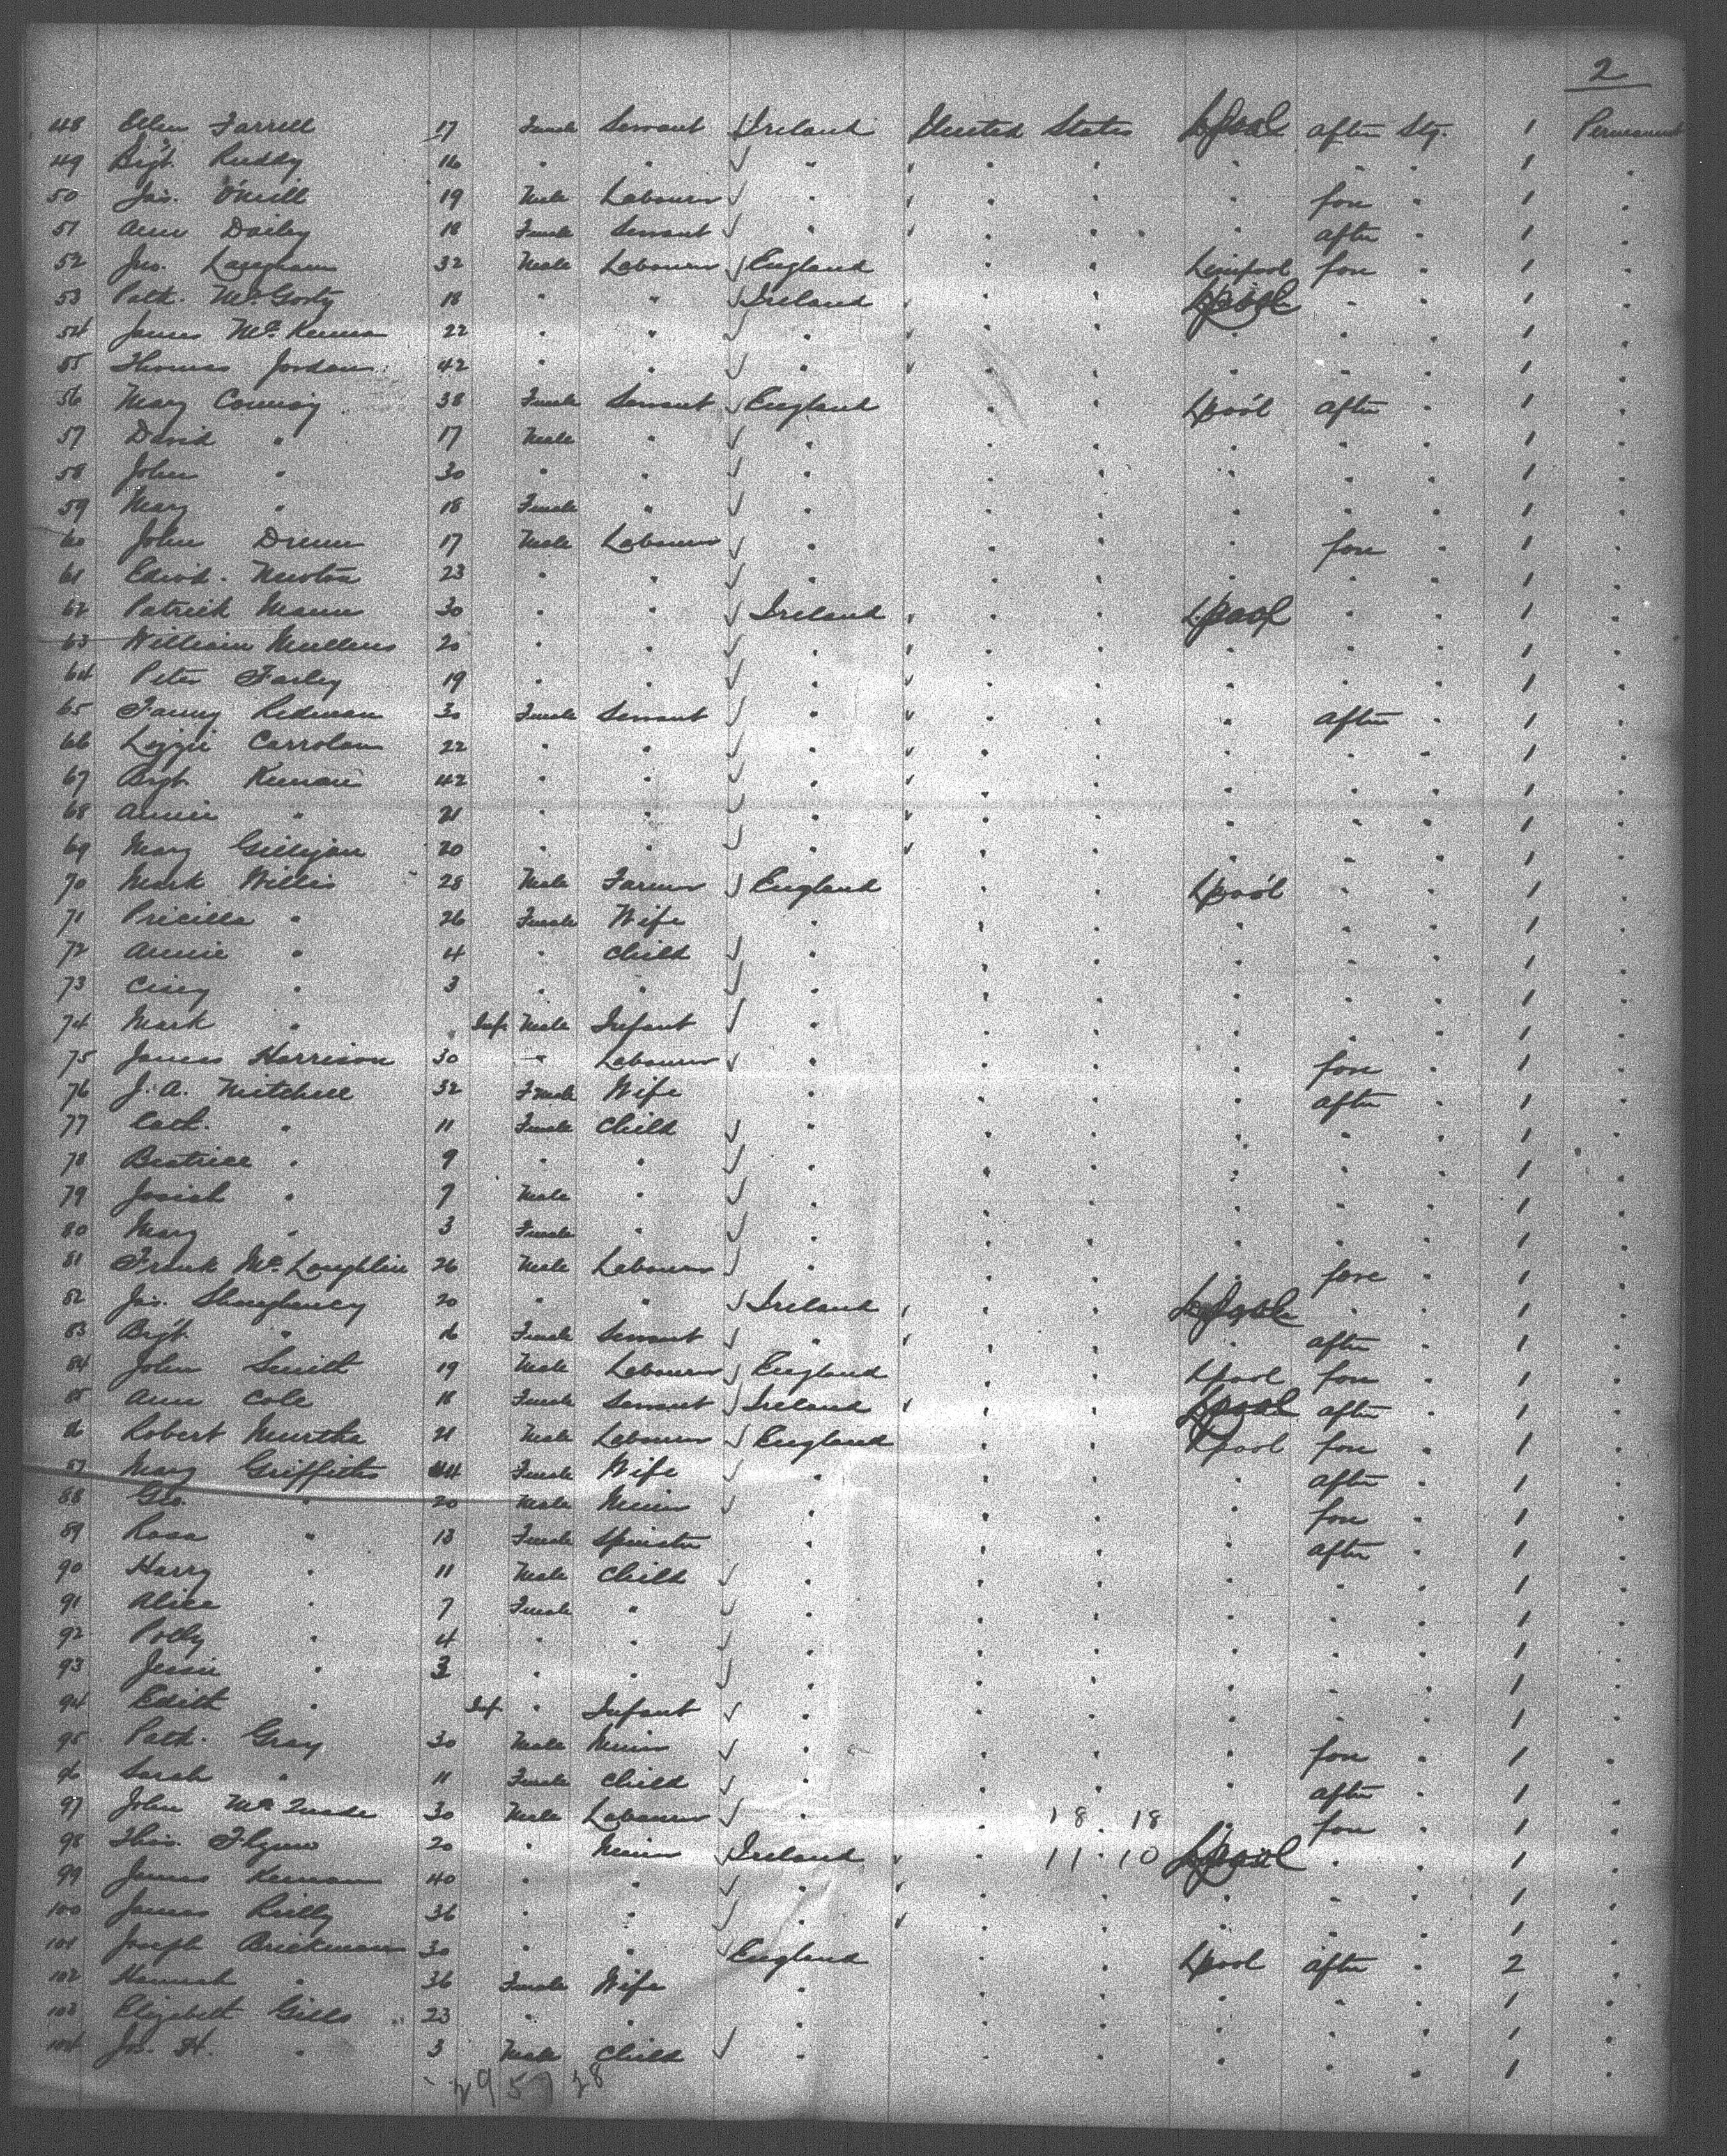 2
48 Ellen Farrell 17 Female Servant Ireland United States L'pool after Stg. 1 Permanent
49 Bigt. Ruddy 16 " " " " " " " " 1 "
50 Jas. O'Neill 19 Male Labourer " " " " fore " 1 "
51 Ann Dailey 18 Female Servant " " " " after " 1 "
52 Jno. Langham 32 Male Labourer England " " Liverpool fore " 1 "
53 Patk. McGorty 18 " " Ireland " " L'pool " " 1 "
54 James McKenna 22 " " " " " " " " 1 "
55 Thomas Jordan 42 " " " " " " " " 1 "
56 Mary Conway 38 Female Servant England " " L'pool after " 1 "
57 David " 17 Male " " " " " " " 1 "
58 John " 30 " " " " " " " " 1 "
59 Mary " 18 Female " " " " " " " 1 "
60 John Drenn 17 Male Labourer " " " " fore " 1 "
61 Edwd. Newton 23 " " " " " " " " 1 "
62 Patrick Mann 30 " " Ireland " " L'pool " " 1 "
63 William Mullens 20 " " " " " " " " 1 "
64 Peter Farley 19 " " " " " " " " 1 "
65 Fanny Redman 30 Female Servant " " " " after " 1 "
66 Lizzie Carrolan 22 " " " " " " " " 1 "
67 Bigt Kernan 42 " " " " " " " " 1 "
68 Annie " 21 " " " " " " " " 1 "
69 Mary Gilligan 20 " " " " " " " " 1 "
70 Mark Willis 28 Male Farmer England " " L'pool " " 1 "
71 Pricilla " 26 Female Wife " " " " " " 1 "
72 Annie " 4 " Child " " " " " " 1 "
73 Cissy " 3 " " " " " " " " 1 "
74 Mark " " Inf Male Infant " " " " " " 1 "
75 James Harrison 30 " Labourer " " " " fore " 1 "
76 J. A. Mitchell 32 Female Wife " " " " after " 1 "
77 Cath. " 11 Female Child " " " " " " 1 "
78 Beatrice " 9 " " " " " " " " 1 "
79 Josiah " 7 Male " " " " " " " 1 "
80 Mary " 3 Female " " " " " " " 1 "
81 Frank McLaughlin 26 Male Labourer " " " " fore " 1 "
82 Jas. Shaughnecy 20 " " Ireland " " L'pool " " 1 "
83 Bigt. " 16 Female Servant " " " " after " 1 "
84 John Smith 19 Male Labourer England " " L'pool fore " 1 "
85 Ann Cole 18 Female Servant Ireland " " L'pool after " 1 "
86 Robert Murtha 21 Male Labourer England " " L'pool fore " 1 "
87 Mary Griffiths 44 Female Wife " " " " after " 1 "
88 Geo. " 20 Male Miner " " " " fore " 1 "
89 Rosa " 13 Female Spinster " " " " after " 1 "
90 Harry " 11 Male Child " " " " " " 1 "
91 Alice " 7 Female " " " " " " " 1 "
92 Polly " 4 " " " " " " " " 1 "
93 Jessie " 3 " " " " " " " " 1 "
94 Edith " Inf " Infant " " " " " " 1 "
95 Patk. Gray 30 Male Miner " " " " fore " 1 "
96 Sarah " 11 Female Child " " " " after " 1 "
97 John McQuade 30 Male Labourer " " 18 . 18 " fore " 1 "
98 Thos. Flynn 20 " Miner Ireland " 11 . 10 L'pool " " 1 "
99 James Kernan 40 " " " " " " " " 1 "
100 James Reilly 36 " " " " " " " " 1 "
101 Joseph Brickman 30 " " England " " L'pool after " 2 "
102 Hannah " 36 Female Wife " " " " " " 1 "
103 Elizabeth Gills 23 " " " " " " " " 1 "
104 Jos. H. " 3 Male Child " " " " " " 1 "
29 57 28